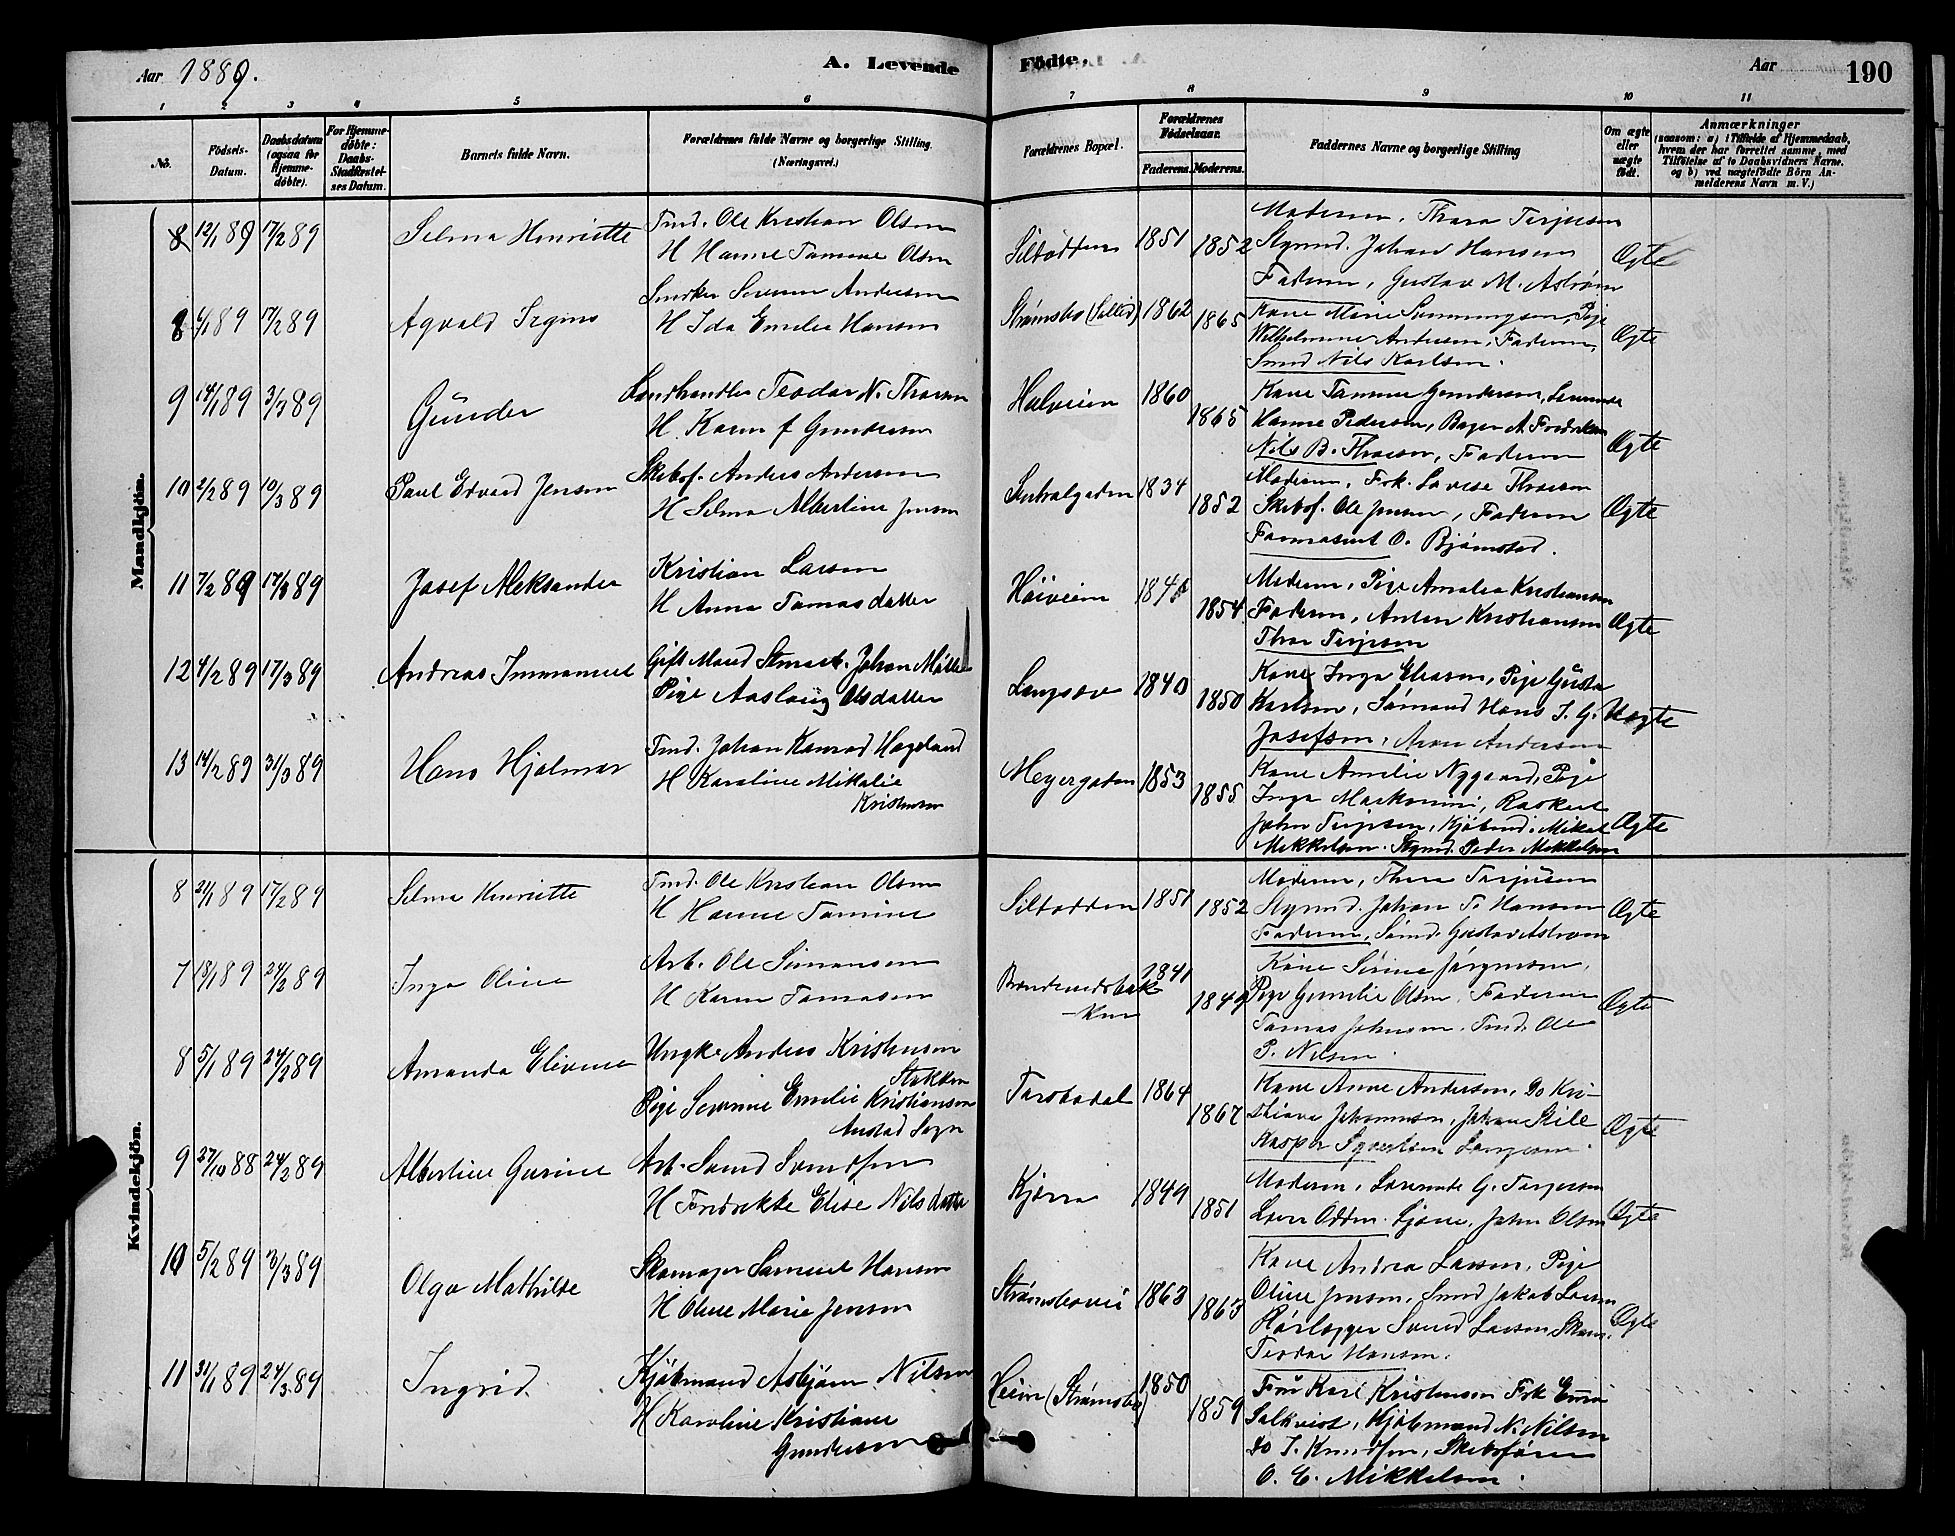 Aar 1889.
A. Levende Födte.
Aar
190
1 2 3 4 5 6 7 8 9 10 11
No.
Födsels-Datum.
Daabsdatum (ogsaa for Hjemme-döbte).
For Hjemme-döbte: Daabs-Stadfæstel-ses Datum.
Barnets fulde Navn.
Forældrenes fulde Navne og borgerlige Stilling. (Næringsvei.)
Forældrenes Bopæl.
Forældrenes Födselsaar.
Faderens. Moderens.
Faddernes Navne og borgerlige Stilling
Om ægte eller uægte födt.
Anmærkninger
(saasom: a) i Tilfælde af Hjemmedaab, hvem der har forrettet samme, med Tilföielse af to Daabsvidners Navne, og b) ved uægtefödte Börn An-melderens Navn m. V.)
Mandkjön.
8 12/1 89 17/2 89 Selma Henriette
Tmd. Ole Kristian Olsen
H Hanne Tomine Olsen
1851 1852
Moderen, Thara Terjesen
Styrmd. Johan Hansen
Faderen, Gustav M. Astrøm
Ægte
8 6/1 89 17/2 89
Smeker Severin Andersen
H Ida Emilie Hansen
Strømsbo 1862 1865
Kone Marie, Pige
Wilhelmine Andersen, Faderen,
Smed Nils Karlsen.
Ægte
9 14/1 89 3/3 89 Günder
Landhandler Teodor N. Thorsen
H. Karen f Gundersen
1860 1865
Kone Tomine Gundersen,
Hanne Pedersen, Bager A Fredriksen
Nils B. Thorsen, Faderen
Ægte
10 2/2 89 10/3 89 Paul Edvard Jensen
Skibsf. Anders Andersen
H Selma Albertine Jensen
Sentralgaden 1834 1852
Moderen, Frk. Lovise Thorsen
Skibsf. Ole Jensen, Faderen
Farmasent O. Bjørnstad.
Ægte
11 7/2 89 17/3 89 Josef Aleksander
Kristian Larsen
H Anna Tomasdatter
Höiveien 1854
Moderen, Pige Amalia Kristiansen
Faderen, Anton Kristiansen
Thor Terjesen
Ægte
12 4/2 89 17/3 89 Andreas Immanuel
Gift Mand Johan Møller
Pige Aaslaug Olsdatter
Langsæv 1840 1850
Kone Inga Eliasen, Pige Gusta
Karlsen, Sømand Hans J. G.
Josefsen, Aron Andersen
Uægte
13 14/2 89 31/3 89 Hans Hjalmar
Tmd. Johan Konrad Hageland
H Karoline Mikalie
Kristensen
Meyergaden 1853 1855
Kone Amelie Nygaard, Pige
Inga
John Terjesen, Kjøbmd. Mikal
Mikkelsen. Styrmd. Peder Mikkelsen
Ægte
Kvindekjön.
8 21/1 89 17/2 89 Selma Henriette
Tmd. Ole Kristian Olsen
H Hanne Tomine
Silbodden 1851 1852
Moderen, Thora Terjesen
Styrmd. Johan T. Hansen
Faderen, Sømd. Gustav Astrøm
Ægte
7 18/1 89 24/2 89 Inga Oline
Arb. Ole Simonsen
H Karen Tomasen
1841 1849
Kone Serine Jørgensen,
Pige Gunelie Olsen, Faderen
Tomas Johnsen, Tmd. Ole
P. Nilsen.
Ægte
8 5/1 89 24/2 89 Amanda Elevine
Ungk. Anders Kristensen
Stokken
Pige Severine Emilie Kristiansen
Austad Sogn
Torsbodal 1864 1867
Kone Anne Andersen, Do Kri-
stiane Johannesen, Johan Skile
Kasper Syvertsen
Ægte
9 27/10 88 24/2 89 Albertine Gurine
Arb. Svend Svendsen
H Fredrikke Elise Nilsdatter
1849 1851
Moderen, G. Terjesen
John Olsen
Ægte
10 5/2 89 3/3 89 Olga Mathilde
Skomager Samuel Hansen
H Oline Marie Jensen
Strømsboveien 1863 1863
Kone Andrea Larsen, Pige
Oline Jensen, Smed Jakob Larsen
Rørlægger Svend Larsen, Skom.
Teodor Hansen.
Ægte
11 31/1 89 24/3 89 Ingrid
Kjøbmand Asbjørn Nilsen
H Karoline Kristiane
Gundersen
Heien (Strømsbo) 1850 1859
Fru Kari Kristensen Frk Emma
Salkvist, Kjøbmand N. Nilsen
Do T. Knudsen, Skibsfører
O. C. Mikkelsen.